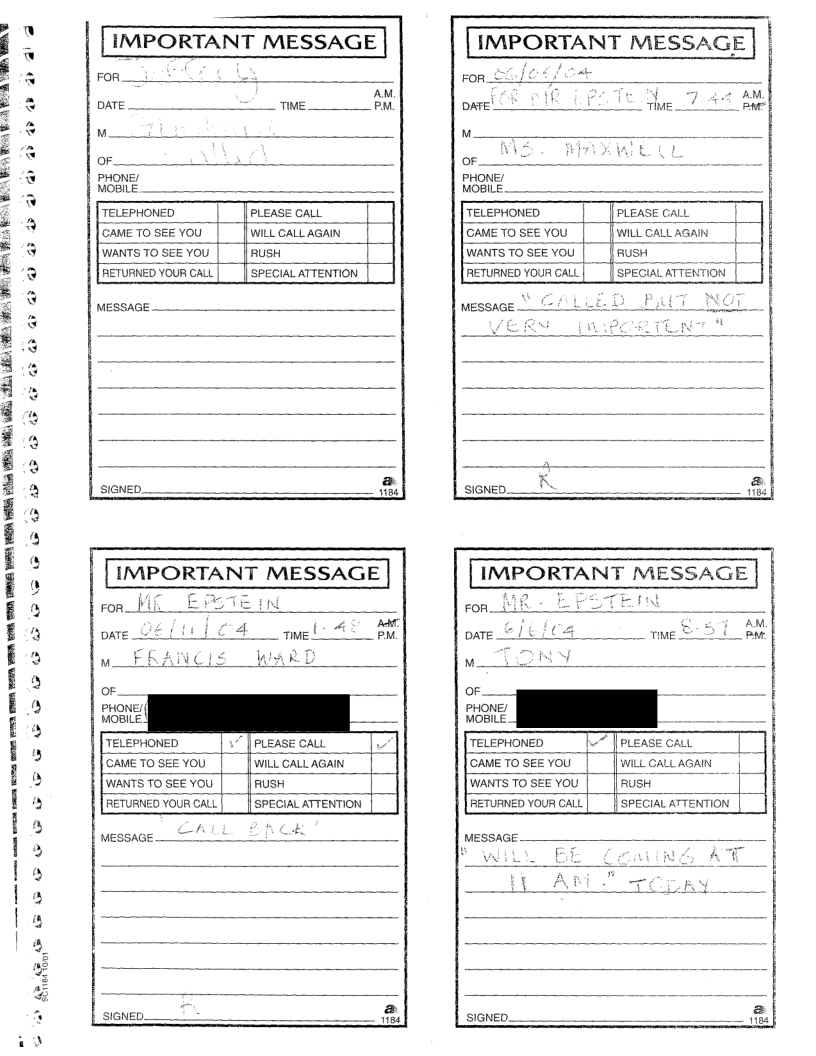 IMPORTANT MESSAGE
FOR
DATE TIME A.M. P.M.
M
OF
PHONE/
MOBILE
TELEPHONED PLEASE CALL
CAME TO SEE YOU WILL CALL AGAIN
WANTS TO SEE YOU RUSH
RETURNED YOUR CALL SPECIAL ATTENTION
MESSAGE
SIGNED
a
1184
IMPORTANT MESSAGE
FOR
DATE FOR MR EPSTEIN TIME 7.44 A.M. P.M.
M
OF MS. MAXWELL
PHONE/
MOBILE
TELEPHONED PLEASE CALL
CAME TO SEE YOU WILL CALL AGAIN
WANTS TO SEE YOU RUSH
RETURNED YOUR CALL SPECIAL ATTENTION
MESSAGE " CALLED BUT NOT
VERY IMPORTENT "
SIGNED
a
1184
IMPORTANT MESSAGE
FOR MR EPSTEIN
DATE 06/11/04 TIME 1.48 A.M. P.M.
M FRANCIS WARD
OF
PHONE/
MOBILE
TELEPHONED PLEASE CALL
CAME TO SEE YOU WILL CALL AGAIN
WANTS TO SEE YOU RUSH
RETURNED YOUR CALL SPECIAL ATTENTION
MESSAGE "CALL BACK"
SIGNED
a
1184
IMPORTANT MESSAGE
FOR MR. EPSTEIN
DATE 6/6/04 TIME 8.57 A.M. P.M.
M TONY
OF
PHONE/
MOBILE
TELEPHONED PLEASE CALL
CAME TO SEE YOU WILL CALL AGAIN
WANTS TO SEE YOU RUSH
RETURNED YOUR CALL SPECIAL ATTENTION
MESSAGE
" WILL BE COMING AT
11 AM." TODAY
SIGNED
a
1184
SC1184 10/01